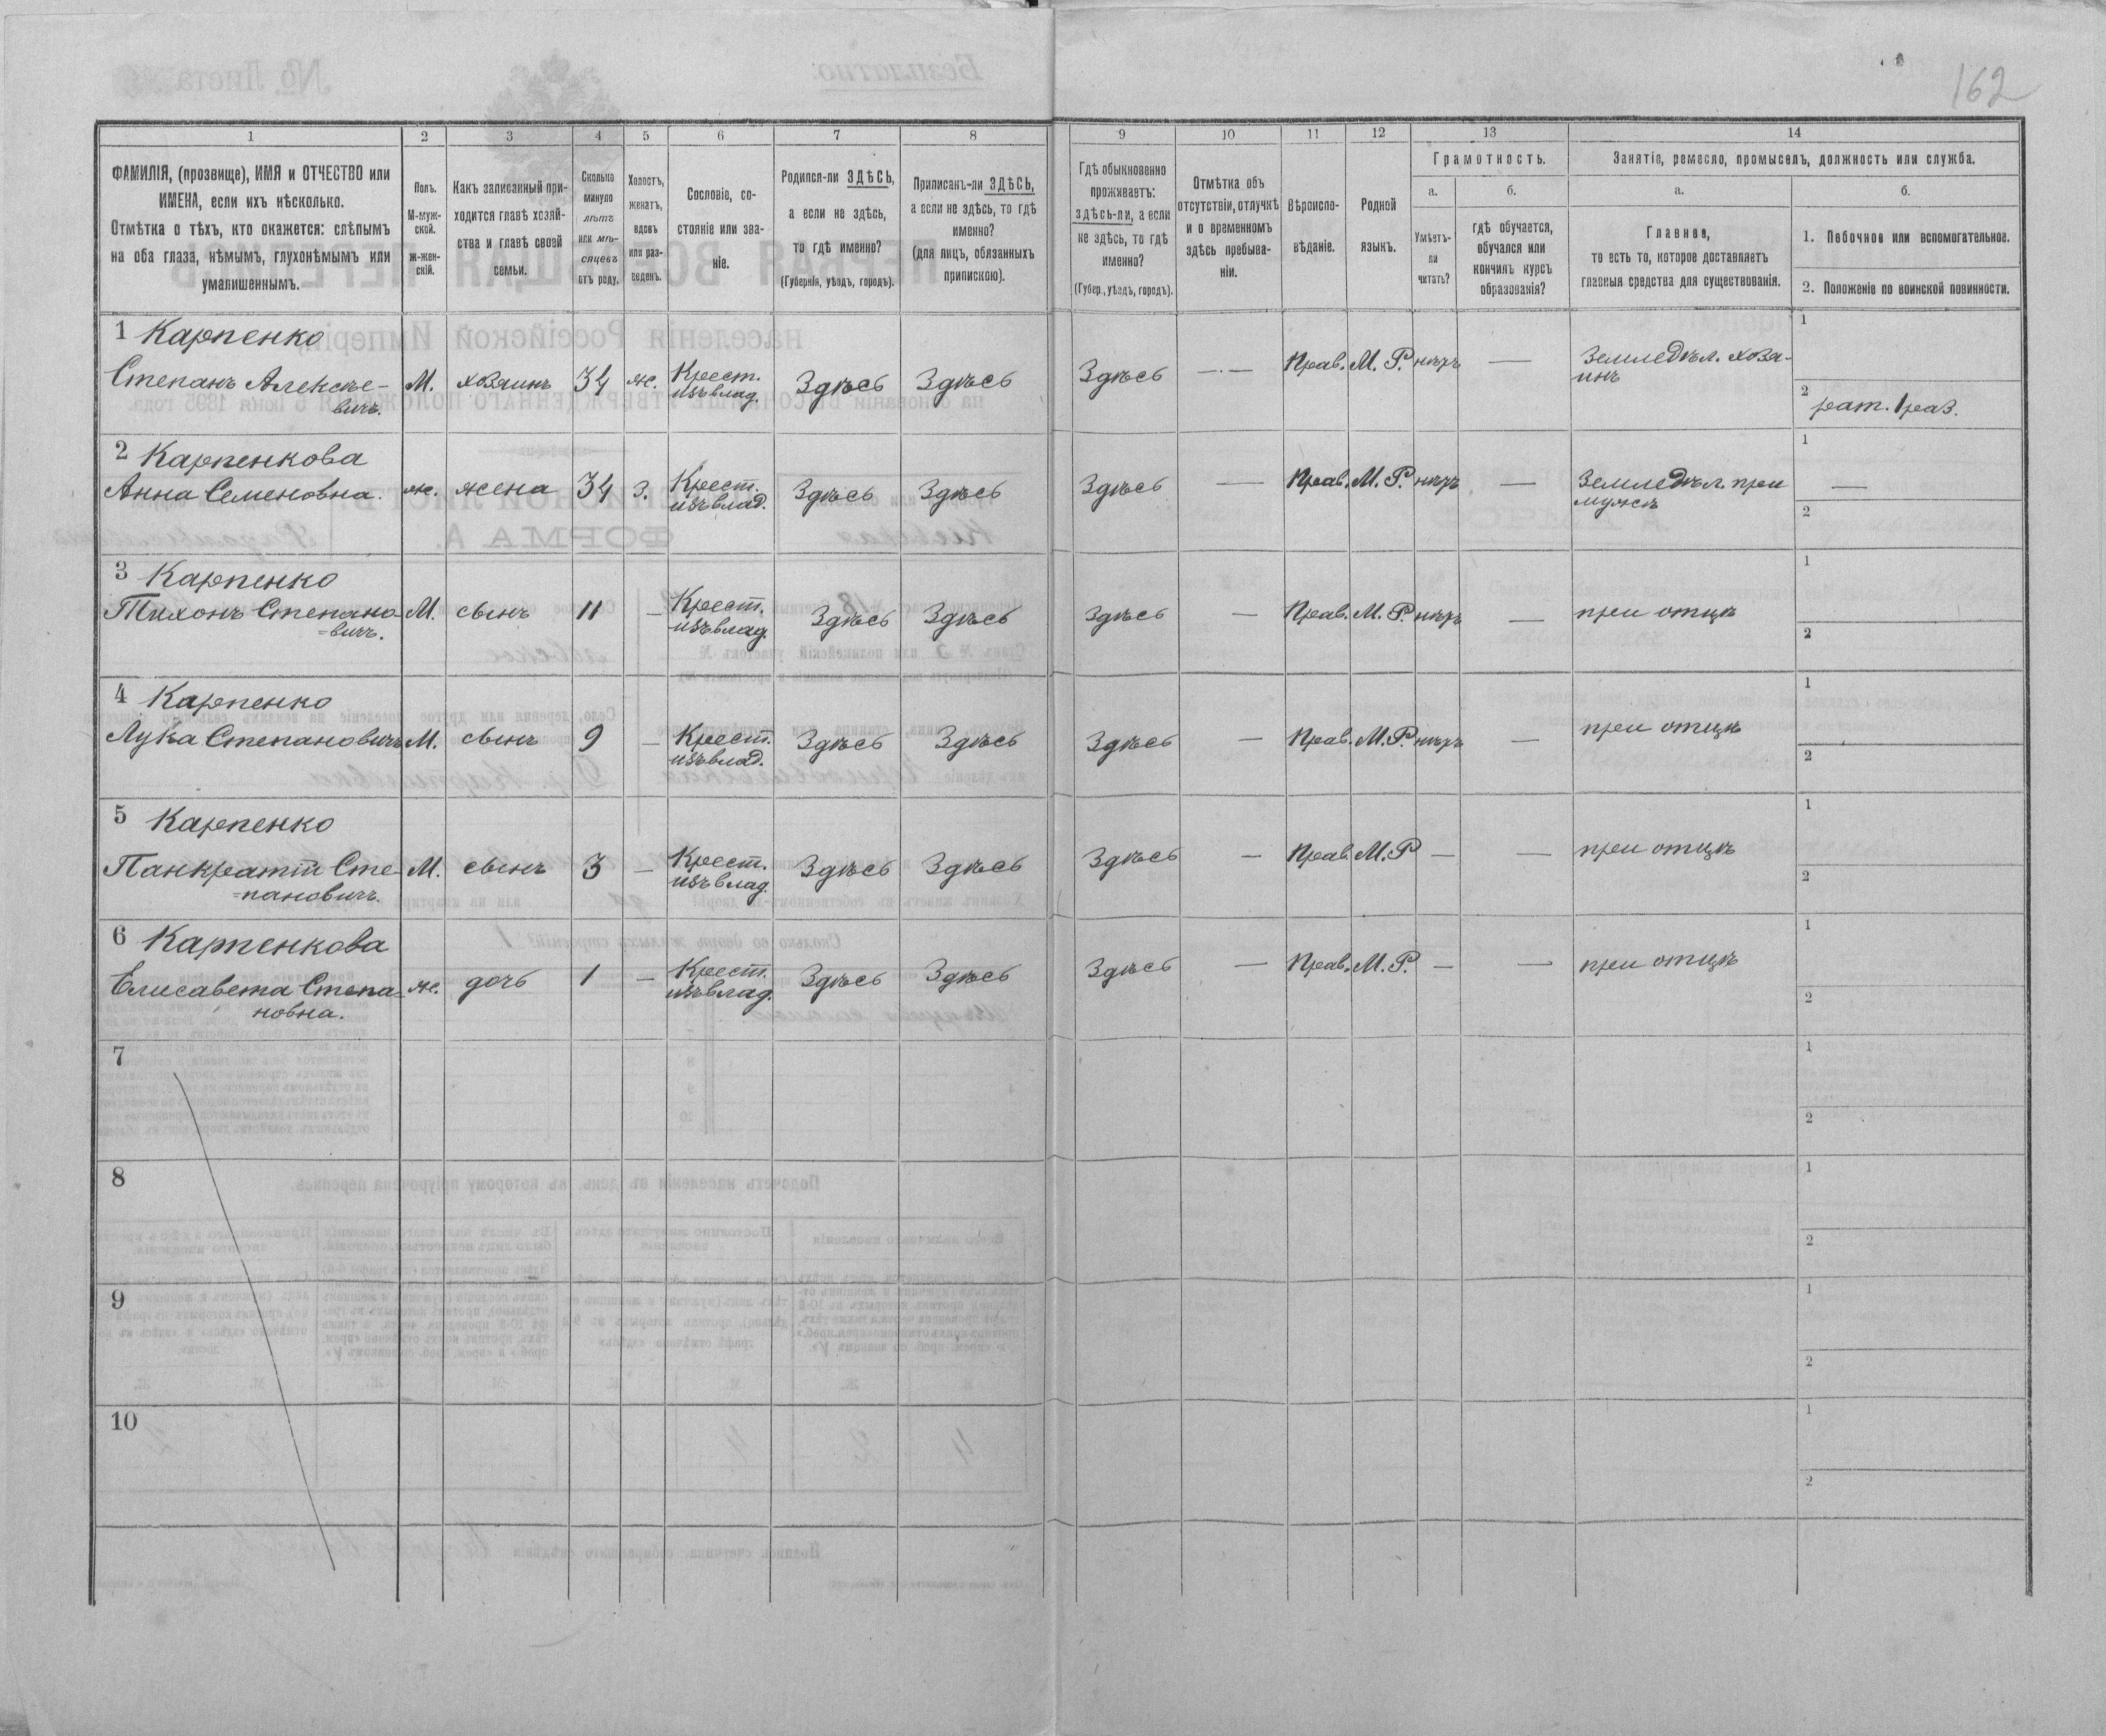 162
1 2 3 4 5 6 7 8 9 10 11 12 13 14
ФАМИЛІЯ, (прозвище), ИМЯ и ОТЧЕСТВО или
ИМЕНА, если ихъ нѣсколько.
Отмѣтка о тѣхъ, кто окажется: слѣпымъ
на оба глаза, нѣмымъ, глухонѣмымъ или
умалишеннымъ.
Полъ.
М-муж-
ской.
ж-жен-
скій.
Какъ записанный при-
ходится главѣ хозяй-
ства и главѣ своей
семьи.
Сколько
минуло
лѣтъ
или мѣ-
сяцевъ
отъ роду.
Холостъ,
женатъ,
вдовъ
или раз-
веденъ.
Сословіе, со-
стояніе или зва-
ніе.
Родился-ли ЗДѢСЬ,
а если не здѣсь,
то гдѣ именно?
(Губернія, уѣздъ, городъ).
Приписанъ-ли ЗДѢСЬ,
а если не здѣсь, то гдѣ
именно?
(для лицъ, обязанныхъ
припискою).
Гдѣ обыкновенно
проживаетъ:
здѣсь-ли, а если
не здѣсь, то гдѣ
именно?
(Губер., уѣздъ, городъ).
Отмѣтка объ
отсутствіи, отлучкѣ
и о временномъ
здѣсь пребыва-
ніи.
Вѣроиспо-
вѣданіе.
Родной
языкъ.
Грамотность.
а.
Умѣетъ-
ли
читать?
б.
гдѣ обучается,
обучался или
кончилъ курсъ
образованія?
Занятіе, ремесло, промыселъ, должность или служба.
а.
Главное,
то есть то, которое доставляетъ
главныя средства для существованія.
б.
1. Побочное или вспомогательное.
2. Положеніе по воинской повинности.
1 Карпенко
Степанъ Алексѣе- М. хозяинъ 34 ж. Крест. Здѣсь Здѣсь Здѣсь — Прав. М. Р. нѣтъ — Земледѣл. хозя- 1
вичъ. изъ влад. инъ 2 рат. 1 раз.
2 Карпенкова
Анна Семеновна. ж. жена 34 З. Крест. Здѣсь Здѣсь Здѣсь — Прав. М. Р. нѣтъ — Земледѣл. при 1 —
изъ влад. мужѣ 2
3 Карпенко
Тихонъ Степано- М. сынъ 11 — Крест. Здѣсь Здѣсь Здѣсь — Прав. М. Р. нѣтъ — при отцѣ 1
=вичъ. изъ влад. 2
4 Карпенко
Лука Степановичъ М. сынъ 9 — Крест. Здѣсь Здѣсь Здѣсь — Прав. М. Р. нѣтъ — при отцѣ 1
изъ влад. 2
5 Карпенко
Панкратій Сте- М. сынъ 3 — Крест. Здѣсь Здѣсь Здѣсь — Прав. М. Р — — при отцѣ 1
=пановичъ. изъ влад. 2
6 Карпенкова
Елисавета Степа- ж. дочь 1 — Крест. Здѣсь Здѣсь Здѣсь — Прав. М. Р. — — при отцѣ 1
новна. изъ влад. 2
7 1
2
8 1
2
9 1
2
10 1
2